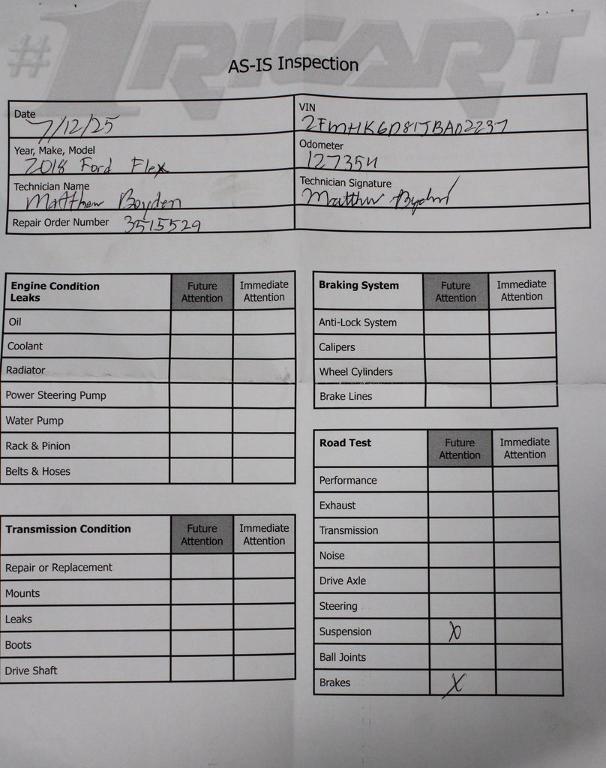 #1RICART
AS-IS Inspection
Date 7/12/25
VIN 2FMHK6D81JBA02237
Year, Make, Model 2018 Ford Flex
Odometer 127354
Technician Name Matthew Boyden
Technician Signature Matthew Boyden
Repair Order Number 3515529
Engine Condition Leaks Future Attention Immediate Attention
Oil
Coolant
Radiator
Power Steering Pump
Water Pump
Rack & Pinion
Belts & Hoses
Transmission Condition Future Attention Immediate Attention
Repair or Replacement
Mounts
Leaks
Boots
Drive Shaft
Braking System Future Attention Immediate Attention
Anti-Lock System
Calipers
Wheel Cylinders
Brake Lines
Road Test Future Attention Immediate Attention
Performance
Exhaust
Transmission
Noise
Drive Axle
Steering
Suspension X
Ball Joints
Brakes X